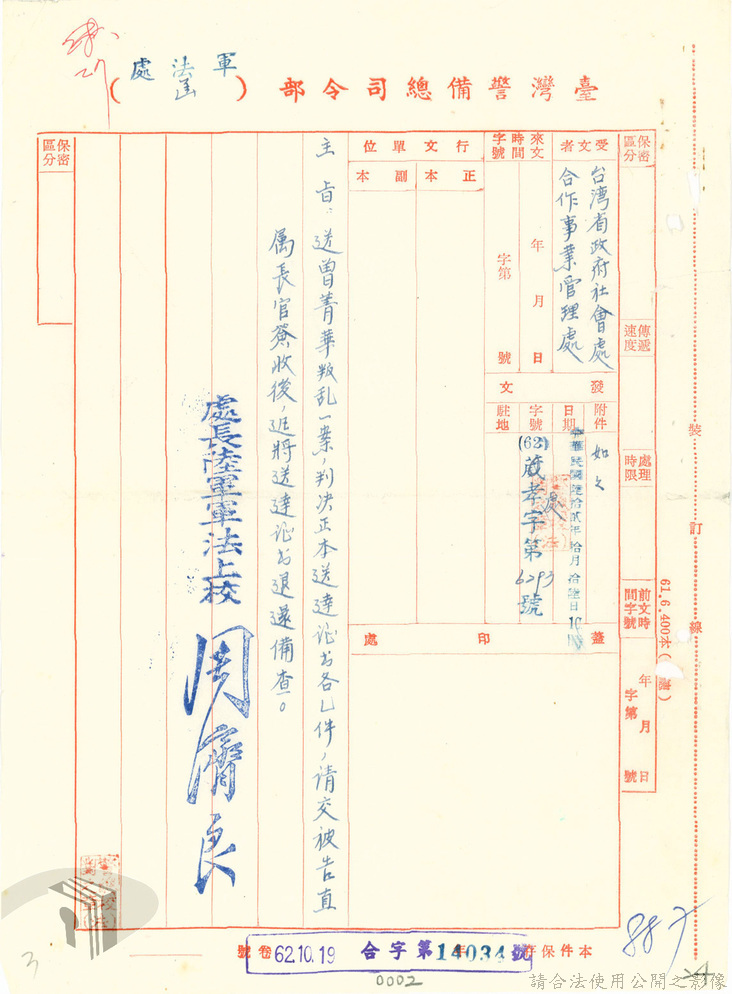 臺灣警備總司令部（軍法處）函
保密區分
傳遞速度
處理時限
前文時間字號
年月日
字第號
受文者
台湾省政府社會處
合作事業管理處
來文
時間
字號
年月日
字第號
行文單位
正本
副本
發文
附件
如文
日期
中華民國陸拾貳年拾月拾陸日10時
字號
(62)蔵孝字第6293號
駐地
蓋印處
主旨：送曾菁華叛乱一案，判决正本送達证书各乙件，请交被告直
属長官簽收後，迅將送達证书退還備查。
處長陸軍軍法上校周濟良
保密區分
裝訂線
61.6.400本
本件保存年
號卷
62.10.19 合字第14034號
0002
887
3
請合法使用公開之影像